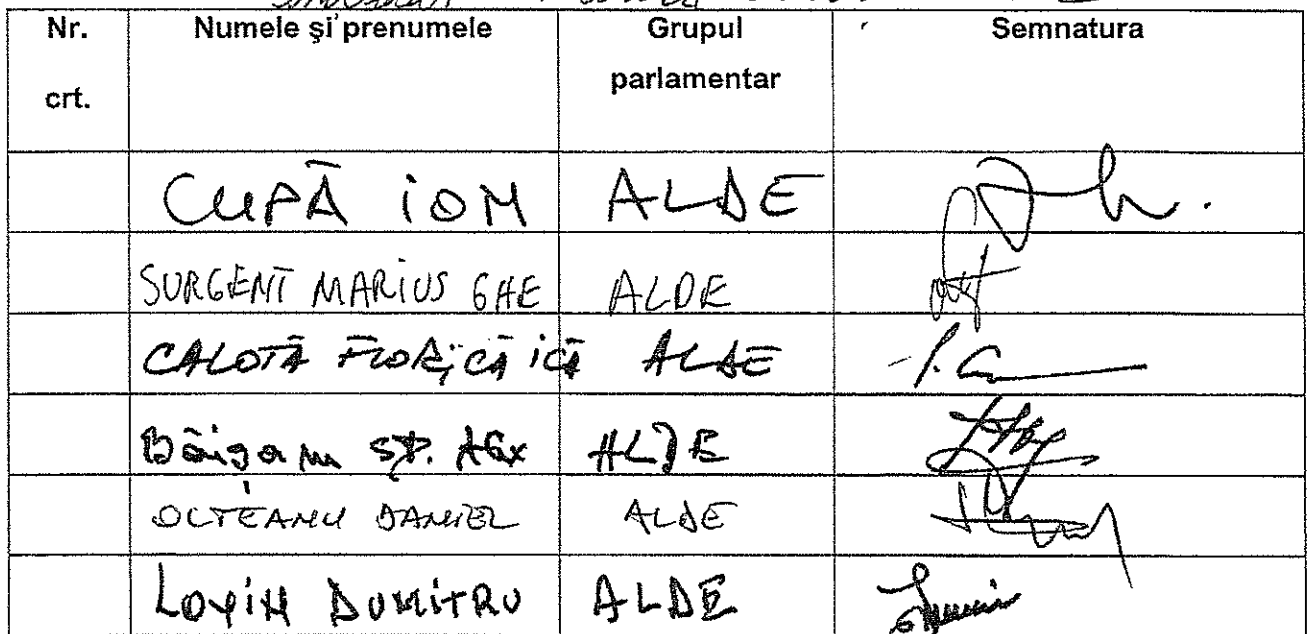 Nr. crt.
Numele şi prenumele
Grupul parlamentar
Semnatura
CUPĂ ION ALDE
SURGENT MARIUS GHE ALDE
CALOTĂ FLORICĂ ICĂ ALDE
ST. ALDE
OLTEANU DANIEL ALDE
LOVIN DUMITRU ALDE